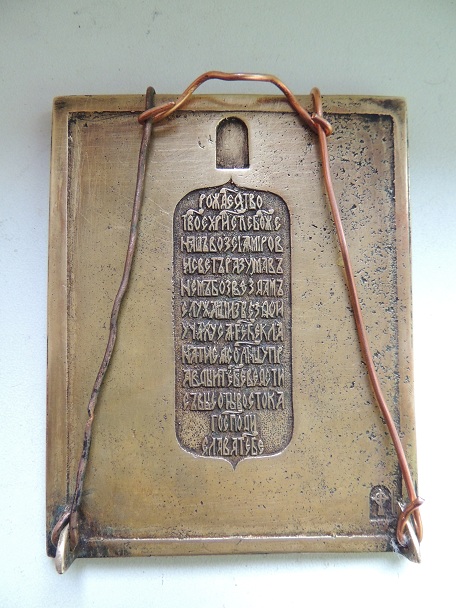 РОЖДЕСТВО
ТВОЕ ХРИСТЕ БОЖЕ
НАШЪ ВОЗСІЯ МІРОВ
И СВЕТЪ РАЗУМА ВЪ
НЕМЪ БО ЗВЕЗДАМЪ
СЛУЖАЩІИ ЗВЕЗДОЮ
УЧАХУСЯ ТЕБЕ КЛА
НЯТИСЯ СОЛНЦУ ПР
АВДЫ И ТЕБЕ ВЕДЕТИ
СЪ ВЫСОТЫ ВОСТОКА
ГОСПОДИ
СЛАВА ТЕБЕ